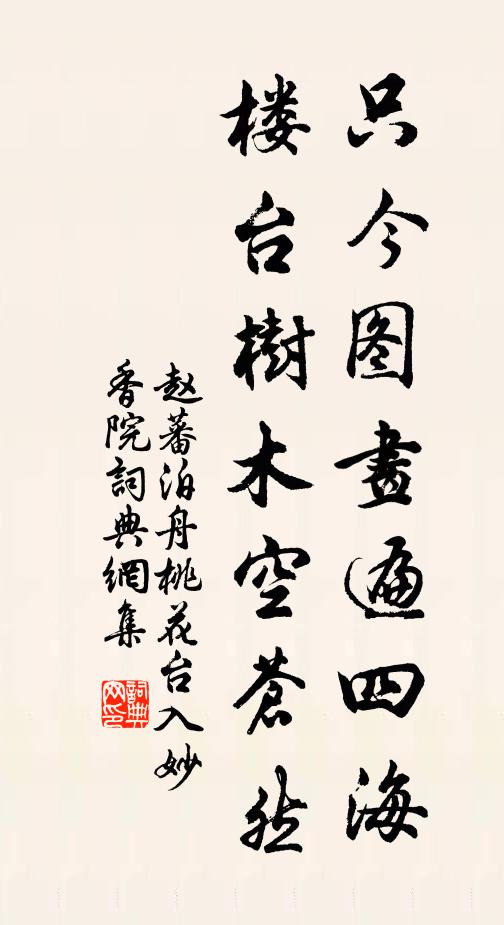 只今图畫遍四海
楼台樹木空蒼然
赵蕃泊舟桃花台入妙
香院詞典網集
詞典网印